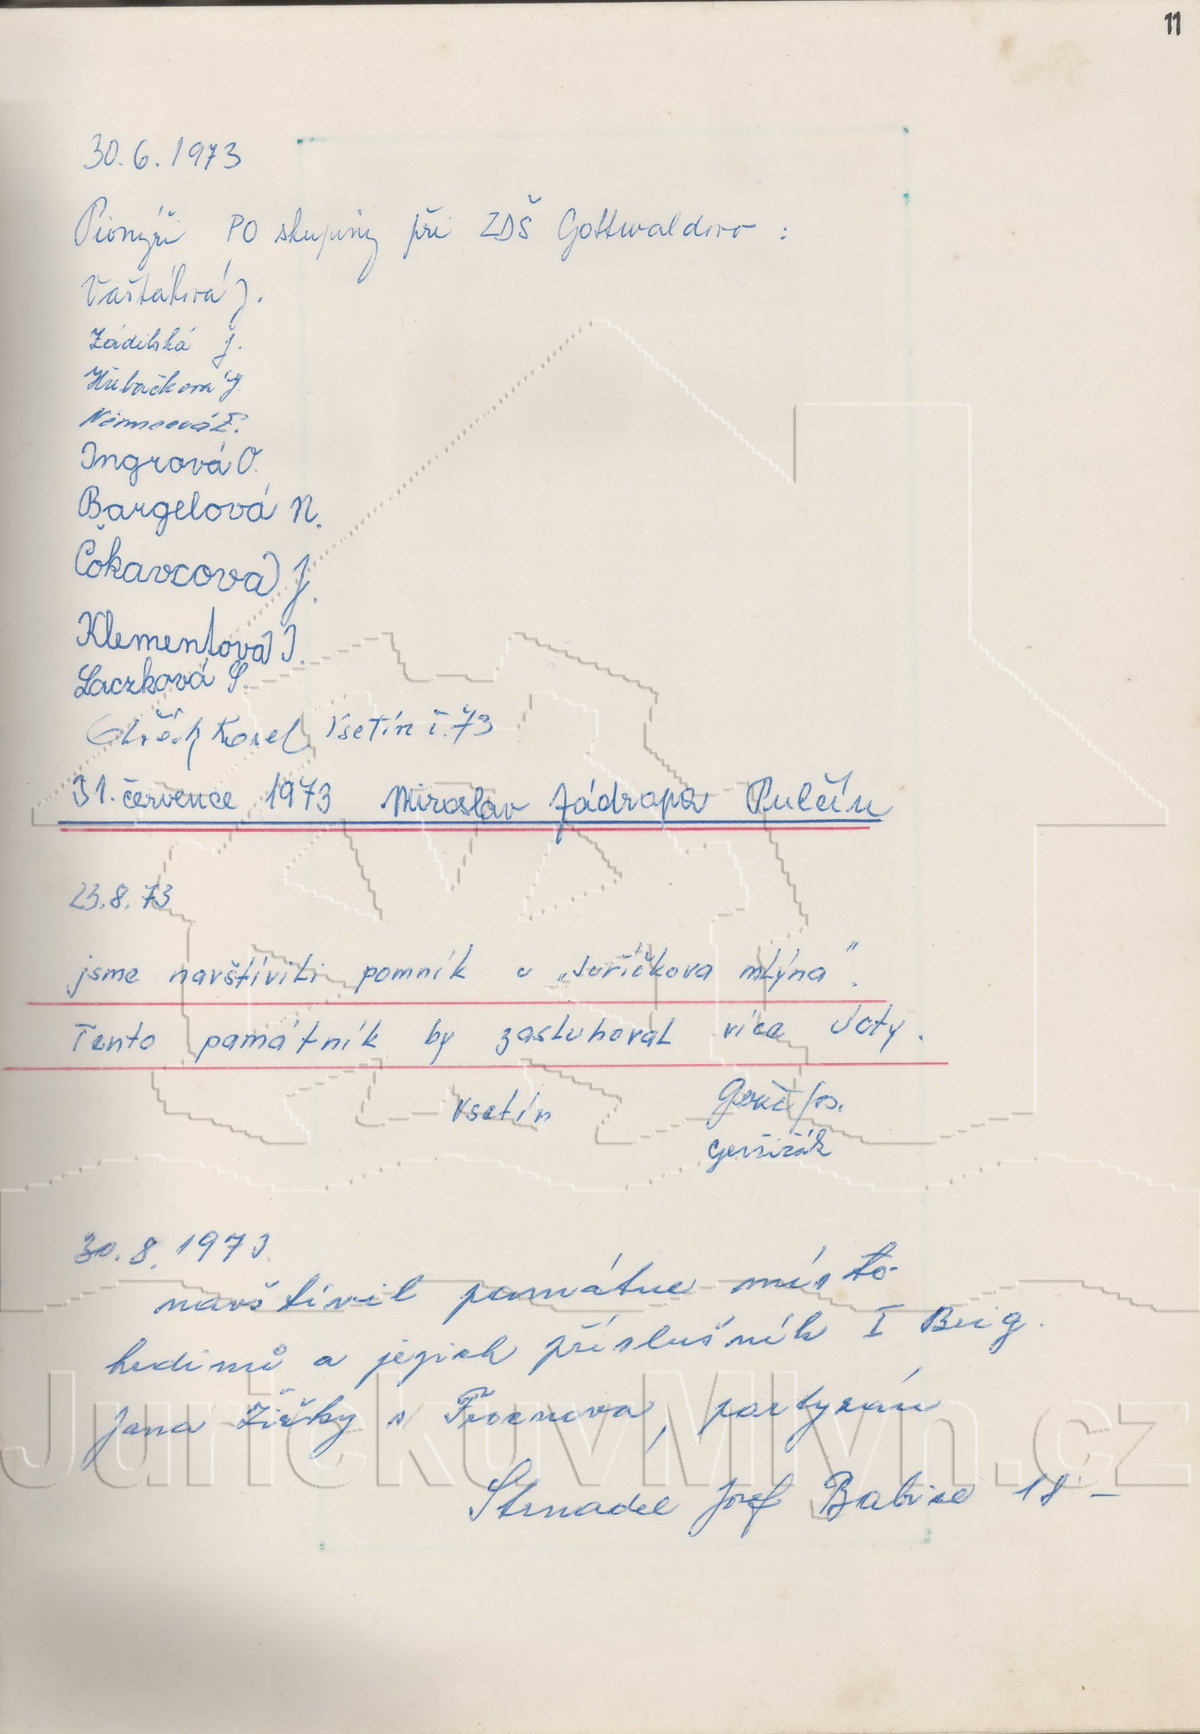 11
30.6.1973
Pionýři PO skupiny při ZDŠ Gottwaldovo :
Vaštáková J.
Zádilská J.
Hubáčková J.
Němcová E.
Ingrová O.
Bargelová N.
Čokavcová J.
Klementová I.
Laczková S.
Karel Vsetín č. 73
31. července 1973 Miroslav Zádrapa Pulčín
23.8.73
jsme navštívili pomník u „Juříčkova mlýna".
Tento památník by zasluhoval více úcty.
Vsetín Jos.
30.8.1973.
navštívil památné místo
hrdinů a jejich příslušník I Brig.
Jana Žižky s Trocnova, partyzán
Strnadel Josef Babice 18 –
JurickuvMlyn.cz